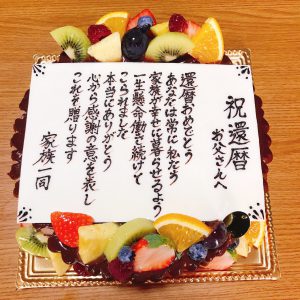 祝還暦
お父さんへ
還暦おめでとう
あなたは常に私たち
家族が幸せに暮らせるよう
一生懸命働き続けて
こられました
本当にありがとう
心から感謝の意を表し
これを贈ります
家族一同